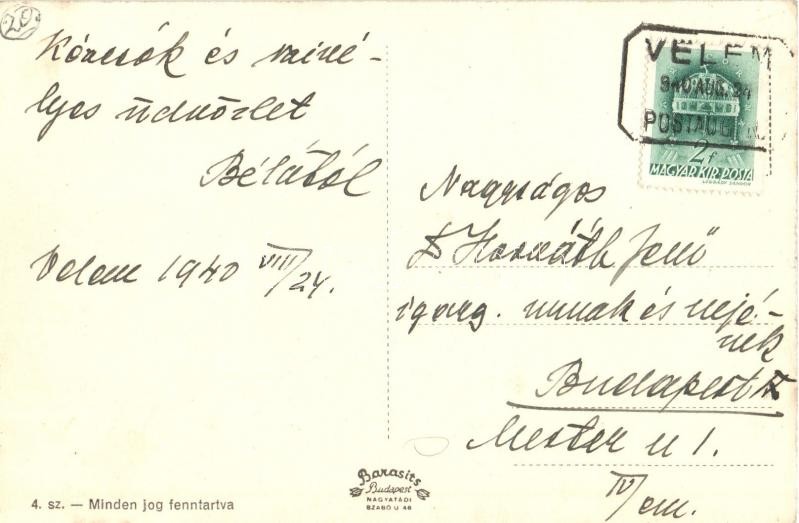 20
Kézcsók és szívé-
lyes üdvözlet
Bélától
Velem 1940 VIII/24.
VELEM
940 AUG. 24
POSTAÜGYN.
2f
MAGYAR KIR. POSTA
LÉGRÁDY SÁNDOR
Nagyságos
Horváth Jenő
igazg. urnak és nejé-
nek
Budapest
Mester u 1.
IV/em.
4. sz. — Minden jog fenntartva
Barasits
Budapest
NAGYATÁDI
SZABÓ U 46